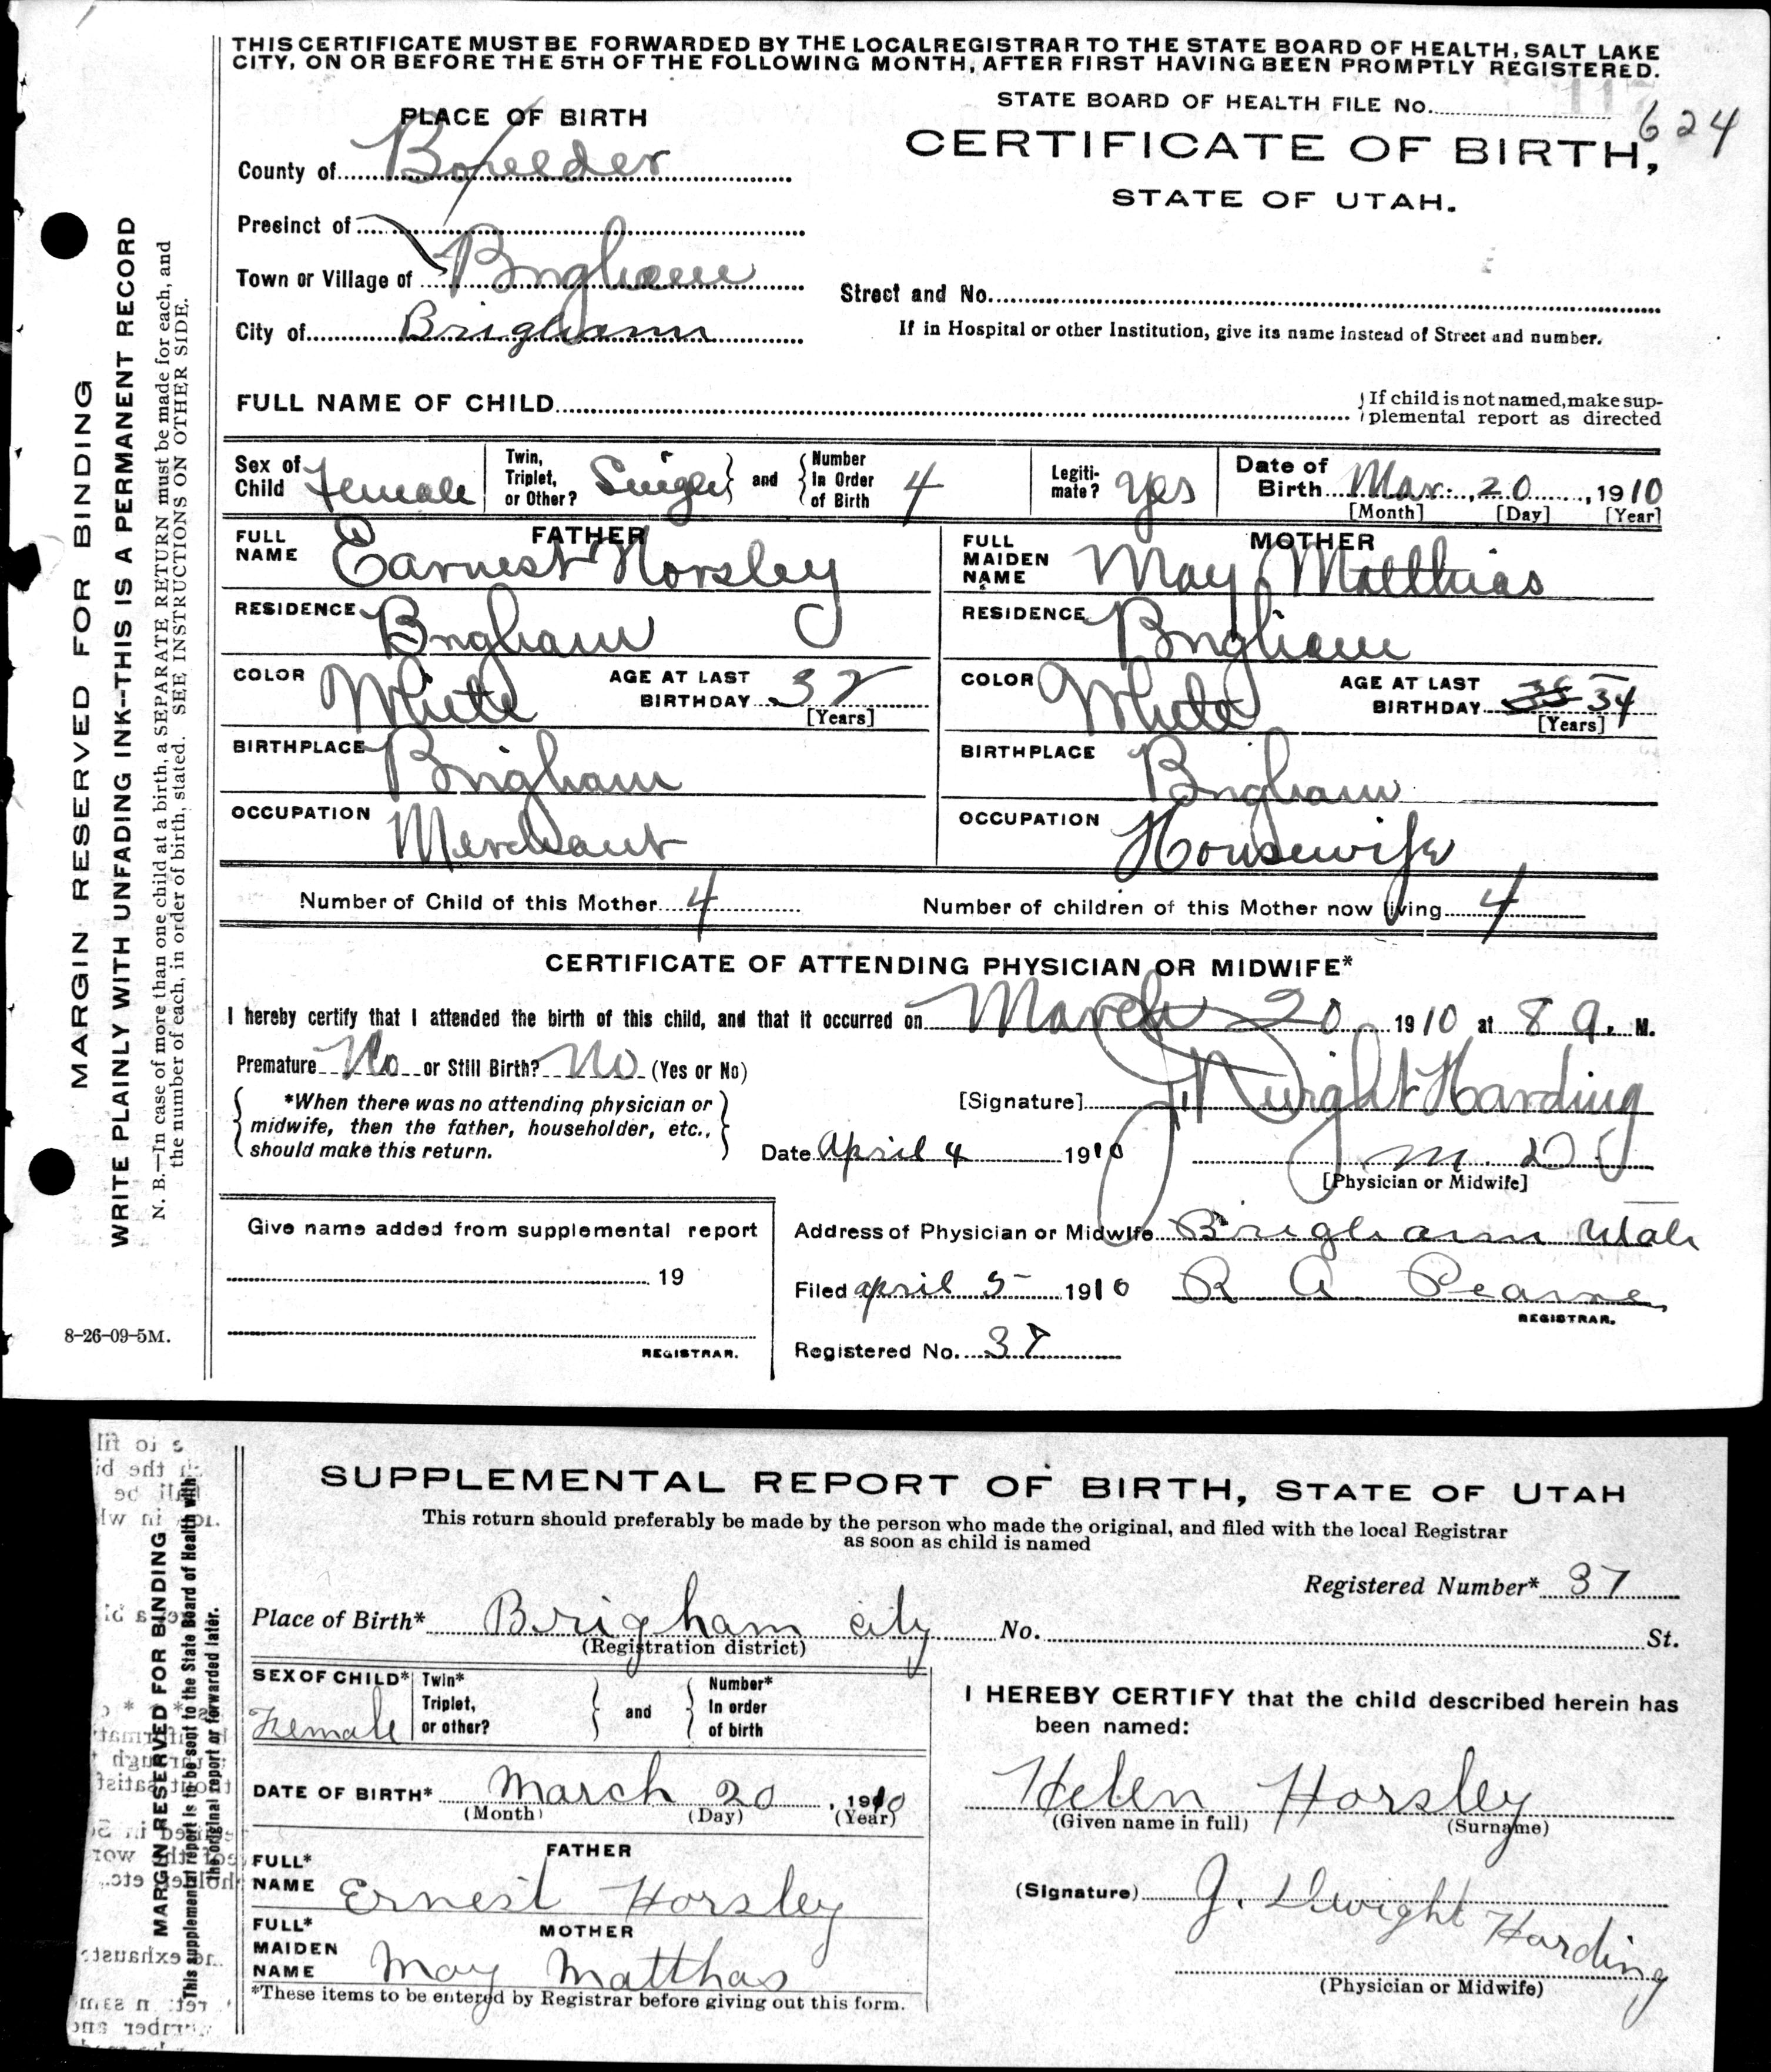 THIS CERTIFICATE MUST BE FORWARDED BY THE LOCAL REGISTRAR TO THE STATE BOARD OF HEALTH, SALT LAKE
CITY, ON OR BEFORE THE 5TH OF THE FOLLOWING MONTH, AFTER FIRST HAVING BEEN PROMPTLY REGISTERED.
STATE BOARD OF HEALTH FILE No.
624
PLACE OF BIRTH
CERTIFICATE OF BIRTH,
STATE OF UTAH.
County of Boxelder
Precinct of
Town or Village of Brigham
City of Brigham
Street and No.
If in Hospital or other Institution, give its name instead of Street and number.
FULL NAME OF CHILD
If child is not named, make sup-
plemental report as directed
Sex of Child Female
Twin, Triplet, or Other? Single and Number In Order of Birth 4
Legiti-mate? yes
Date of Birth Mar. 20, 1910
[Month] [Day] [Year]
FATHER
FULL NAME Earnest Horsley
RESIDENCE Brigham
COLOR White AGE AT LAST BIRTHDAY 32
[Years]
BIRTHPLACE Brigham
OCCUPATION Merchant
MOTHER
FULL MAIDEN NAME May Matthias
RESIDENCE Brigham
COLOR White AGE AT LAST BIRTHDAY 34
[Years]
BIRTHPLACE Brigham
OCCUPATION Housewife
Number of Child of this Mother 4
Number of children of this Mother now living 4
CERTIFICATE OF ATTENDING PHYSICIAN OR MIDWIFE*
I hereby certify that I attended the birth of this child, and that it occurred on March 20 1910 at 8 a. M.
Premature No or Still Birth? No (Yes or No)
*When there was no attending physician or
midwife, then the father, householder, etc.,
should make this return.
[Signature] J Dwight Harding
Date April 4 1910
M. D.
[Physician or Midwife]
Give name added from supplemental report
19
REGISTRAR.
Address of Physician or Midwife Brigham Utah
Filed April 5 1910 R A Pearse
REGISTRAR.
Registered No. 37
MARGIN RESERVED FOR BINDING
WRITE PLAINLY WITH UNFADING INK--THIS IS A PERMANENT RECORD
N. B.—In case of more than one child at a birth, a SEPARATE RETURN must be made for each, and
the number of each, in order of birth, stated. SEE INSTRUCTIONS ON OTHER SIDE.
8-26-09-5M.
SUPPLEMENTAL REPORT OF BIRTH, STATE OF UTAH
This return should preferably be made by the person who made the original, and filed with the local Registrar
as soon as child is named
Registered Number* 37
Place of Birth* Brigham City No. St.
(Registration district)
SEX OF CHILD* Female
Twin* Triplet, or other? and Number* In order of birth
DATE OF BIRTH* March 20, 1910
(Month) (Day) (Year)
FATHER
FULL* NAME Ernest Horsley
MOTHER
FULL* MAIDEN NAME May Matthas
*These items to be entered by Registrar before giving out this form.
I HEREBY CERTIFY that the child described herein has
been named:
Helen Horsley
(Given name in full) (Surname)
(Signature) J. Dwight Harding
(Physician or Midwife)
MARGIN RESERVED FOR BINDING
This supplemental report is to be sent to the State Board of Health with
the original report or forwarded later.